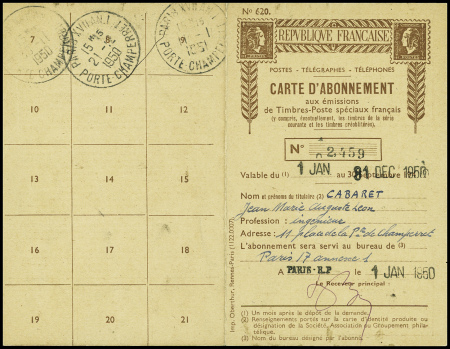 No 620.
RÉPVBLIQVE FRANÇAISE
POSTES - TÉLÉGRAPHES - TÉLÉPHONES
CARTE D'ABONNEMENT
aux émissions
de Timbres-Poste spéciaux français
(y compris, éventuellement, les timbres de la série
courante et les timbres préoblitérés).
No 2459
1 JAN 31 DEC 1950
Valable du (1) au 30 septembre
Nom et prénoms du titulaire (2) CABARET
Jean Marie Auguste Léon
Profession : ingénieur
Adresse : 11 place de la Pte de Champerret
L'abonnement sera servi au bureau de (3)
Paris 17 annexe 1
A PARIS-R.P le 1 JAN 1950
Le Receveur principal :
(1) Un mois après le dépôt de la demande.
(2) Renseignements portés sur la carte d'identité produite ou
désignation de la Société, Association ou Groupement phila-
télique.
(3) Nom du bureau désigné par l'abonné.
Imp. Oberthur, Rennes-Paris (1122-0007)
7
1950
PORTE CHAMPERRET
15
21
1950
PORTE-CHAMPERRET
1951
PORTE-CHAMPERRET
10 11 12
13 14 15
16 17 18
19 20 21